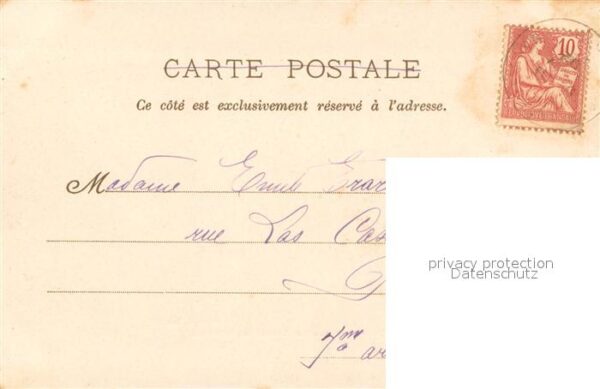 CARTE POSTALE
Ce côté est exclusivement réservé à l'adresse.
10
Madame Emile Erar
rue Las Cas
7me ar
privacy protection
Datenschutz